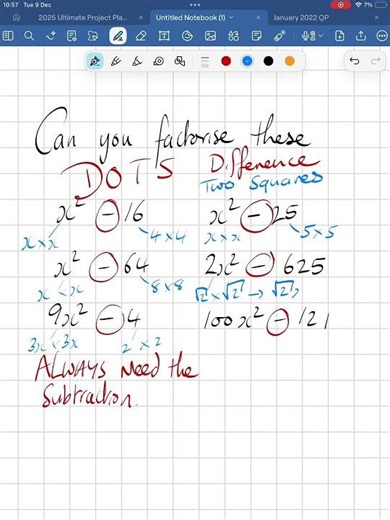 10:57 Tue 9 Dec
7%
2025 Ultimate Project Pla...
Untitled Notebook (1)
January 2022 QP
Can you factorise these
DOTS Difference
Two Squares
x² − 16 x² − 25
x × x 4 × 4 x × x 5 × 5
x² − 64 2x² − 625
x × x 8 × 8 √2 × √2 → √2x
9x² − 4 100x² − 121
3x × 3x 2 × 2
ALWAYS Need the
Subtraction.